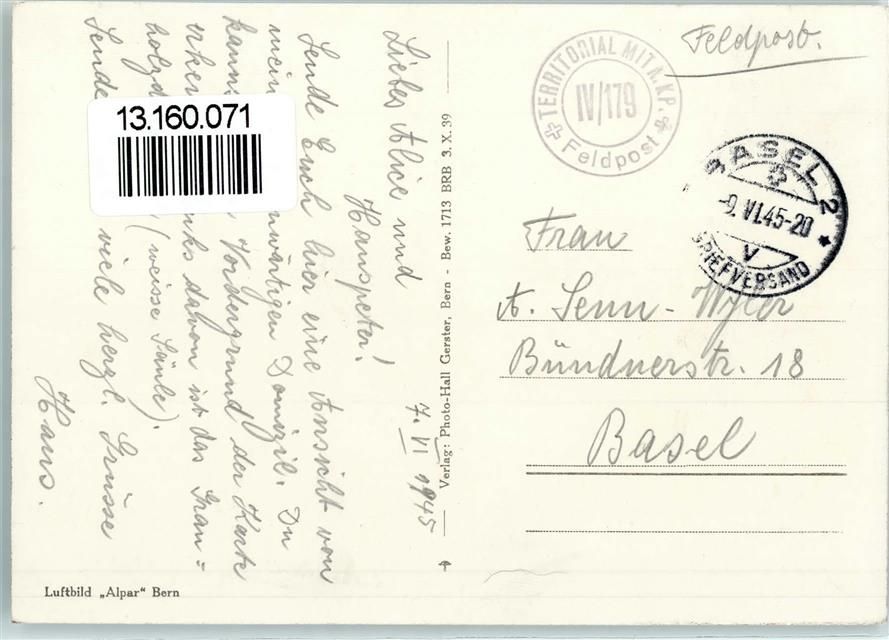 7. VI 1945
Liebes Alice und
Hanspeter!
Sende Euch hier eine Ansicht von
mein nwärtigen Domizil. Du
kanns Vordergrund der Karte
erken nks davon ist das Gran=
holzd (weisse Säule).
Sende viele herzl. Grüsse
Hans.
13.160.071
Verlag: Photo-Hall Gerster, Bern - Bew. 1713 BRB 3. X. 39
Luftbild „Alpar“ Bern
Feldpost.
TERRITORIAL MITR. KP.
IV/179
Feldpost
BASEL 2
-9. VI. 45-20
V
BRIEFVERSAND
Frau
A. Senn-Wyler
Bündnerstr. 18
Basel